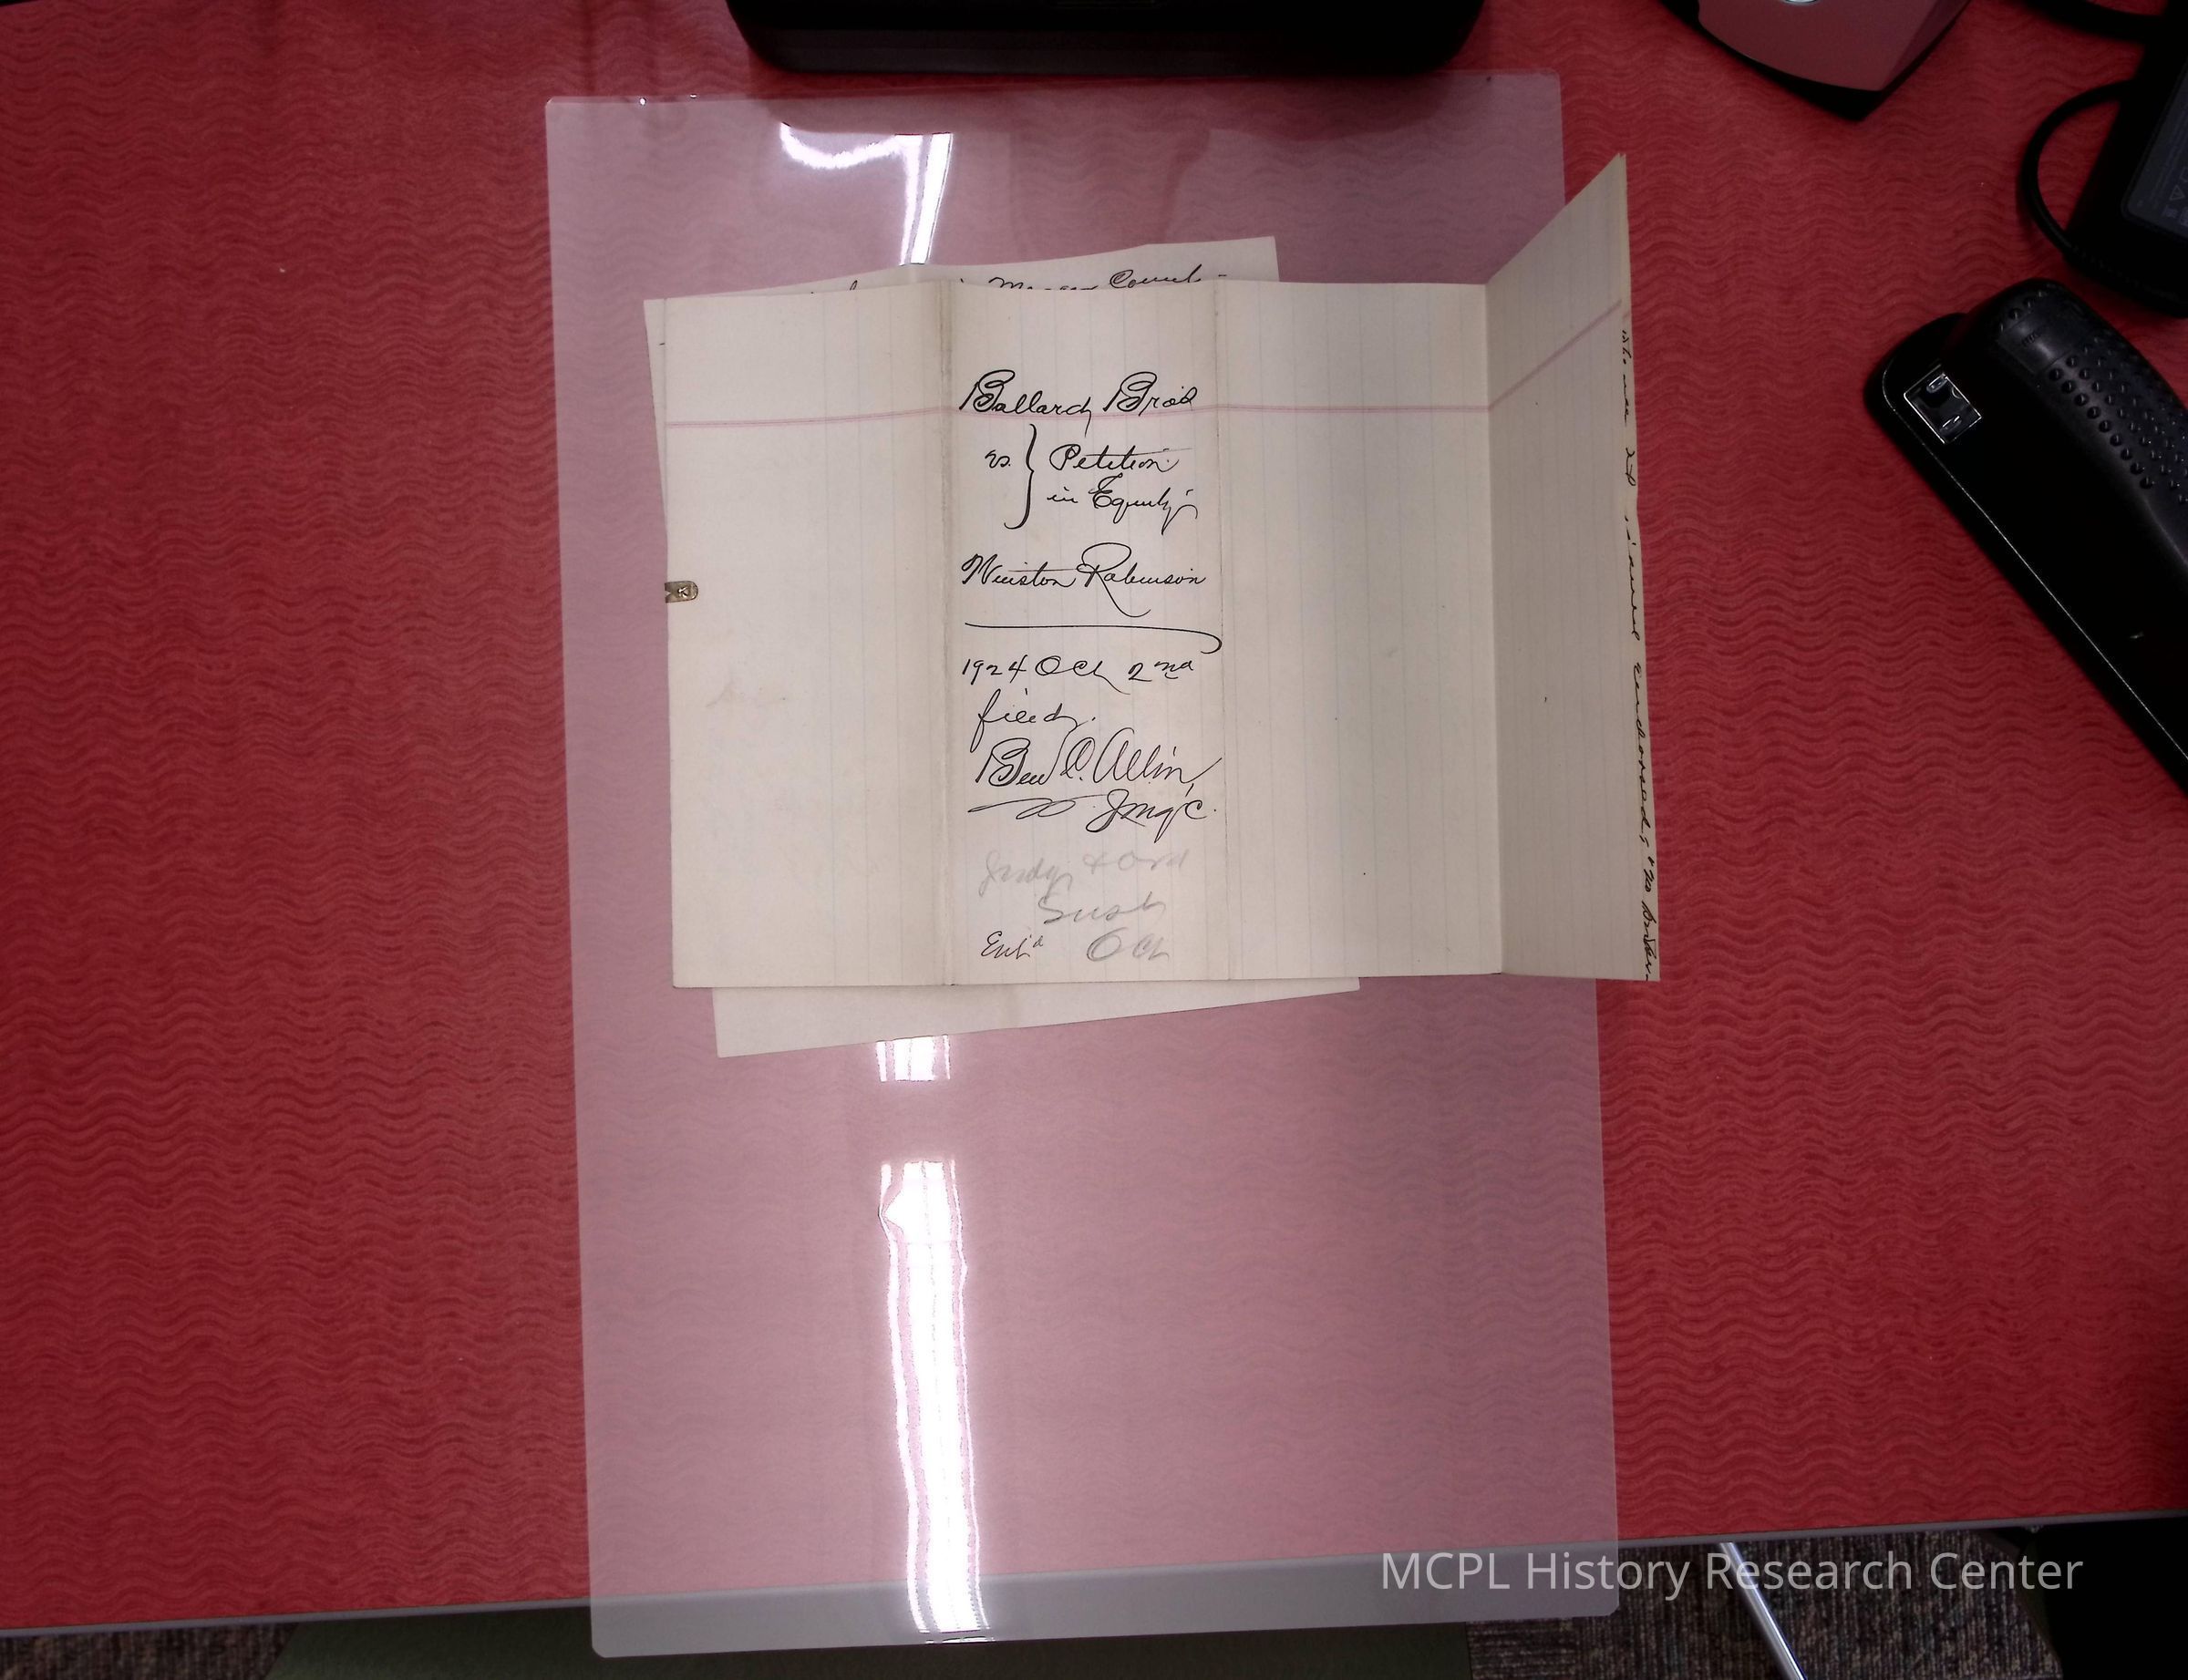 Mercer County
Ballard Bros
vs. } Petition
in Equity
Winston Robinson
1924 Oct 2nd
filed.
Ben C. Allin,
Judg & Ord
Sust
Ent'd Oct
endorsed, "no
MCPL History Research Center